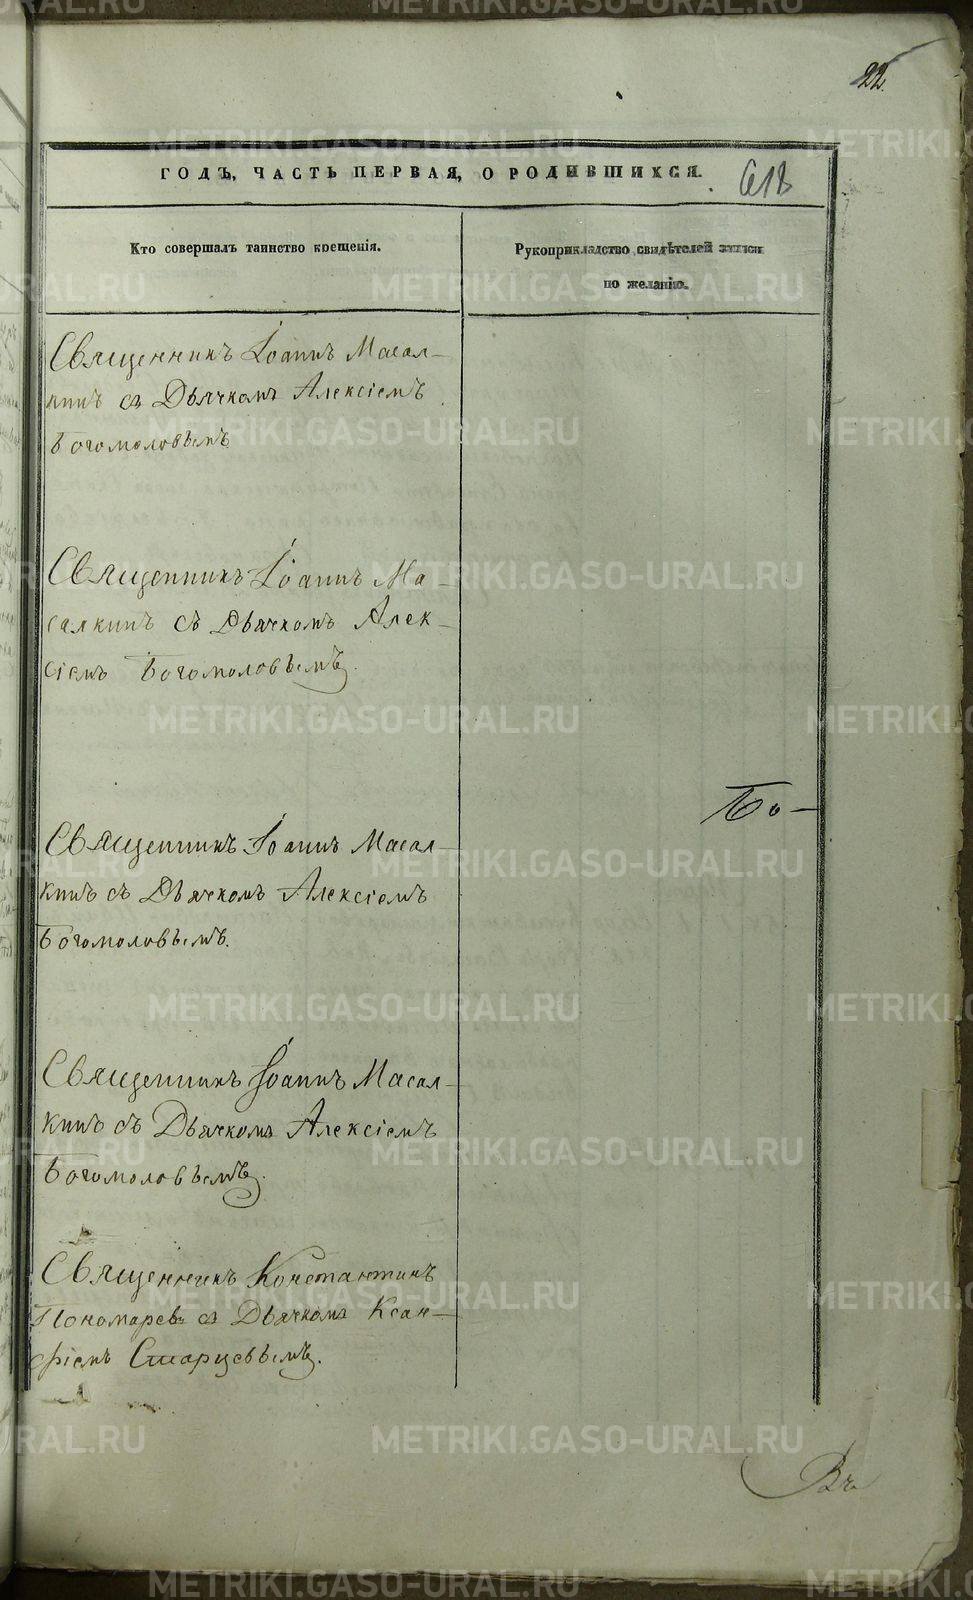 22.
ГОДЪ, ЧАСТЬ ПЕРВАЯ, О РОДИВШИХСЯ.
618
Кто совершалъ таинство крещенія.
Рукоприкладство свидѣтелей записи
по желанію.
Священникъ Іоаннъ Масал-
кинъ съ Дьячкомъ Алексіемъ
Богомоловымъ
Священникъ Іоаннъ Ма-
салкинъ съ Дьячкомъ Алек-
сіемъ Богомоловымъ.
Бо-
Священникъ Іоаннъ Масал-
кинъ съ Дьячкомъ Алексіемъ
Богомоловымъ.
Священникъ Іоаннъ Масал-
кинъ съ Дьячкомъ Алексіемъ
Богомоловымъ.
Священникъ Константинъ
Пономаревъ съ Дьячкомъ Ксан-
фіемъ Старцевымъ.
METRIKI.GASO-URAL.RU